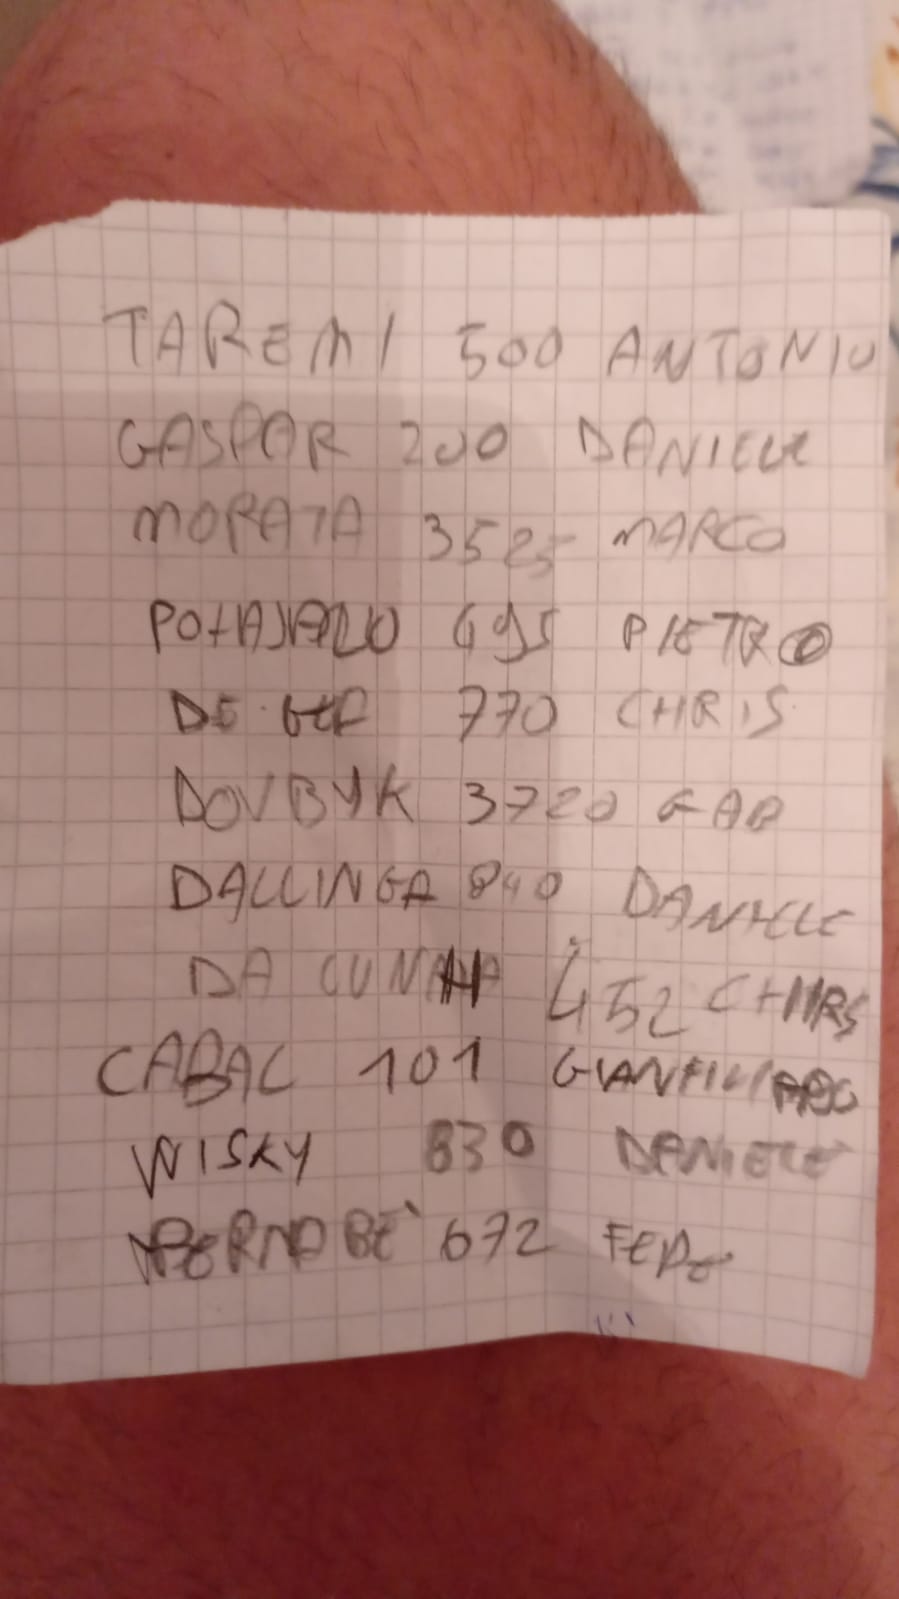 TAREMI 500 ANTONIO
GASPAR 200 DANIELE
MORATA 3525 MARCO
495 PIETRO
DE 770 CHRIS
DOVBYK 3720 GAB
DALLINGA 840 DANIELE
DA CUNHA 452 CHRIS
CABAL 101
WISKY 830 DANIELE
BERNABÈ 672 FEDE